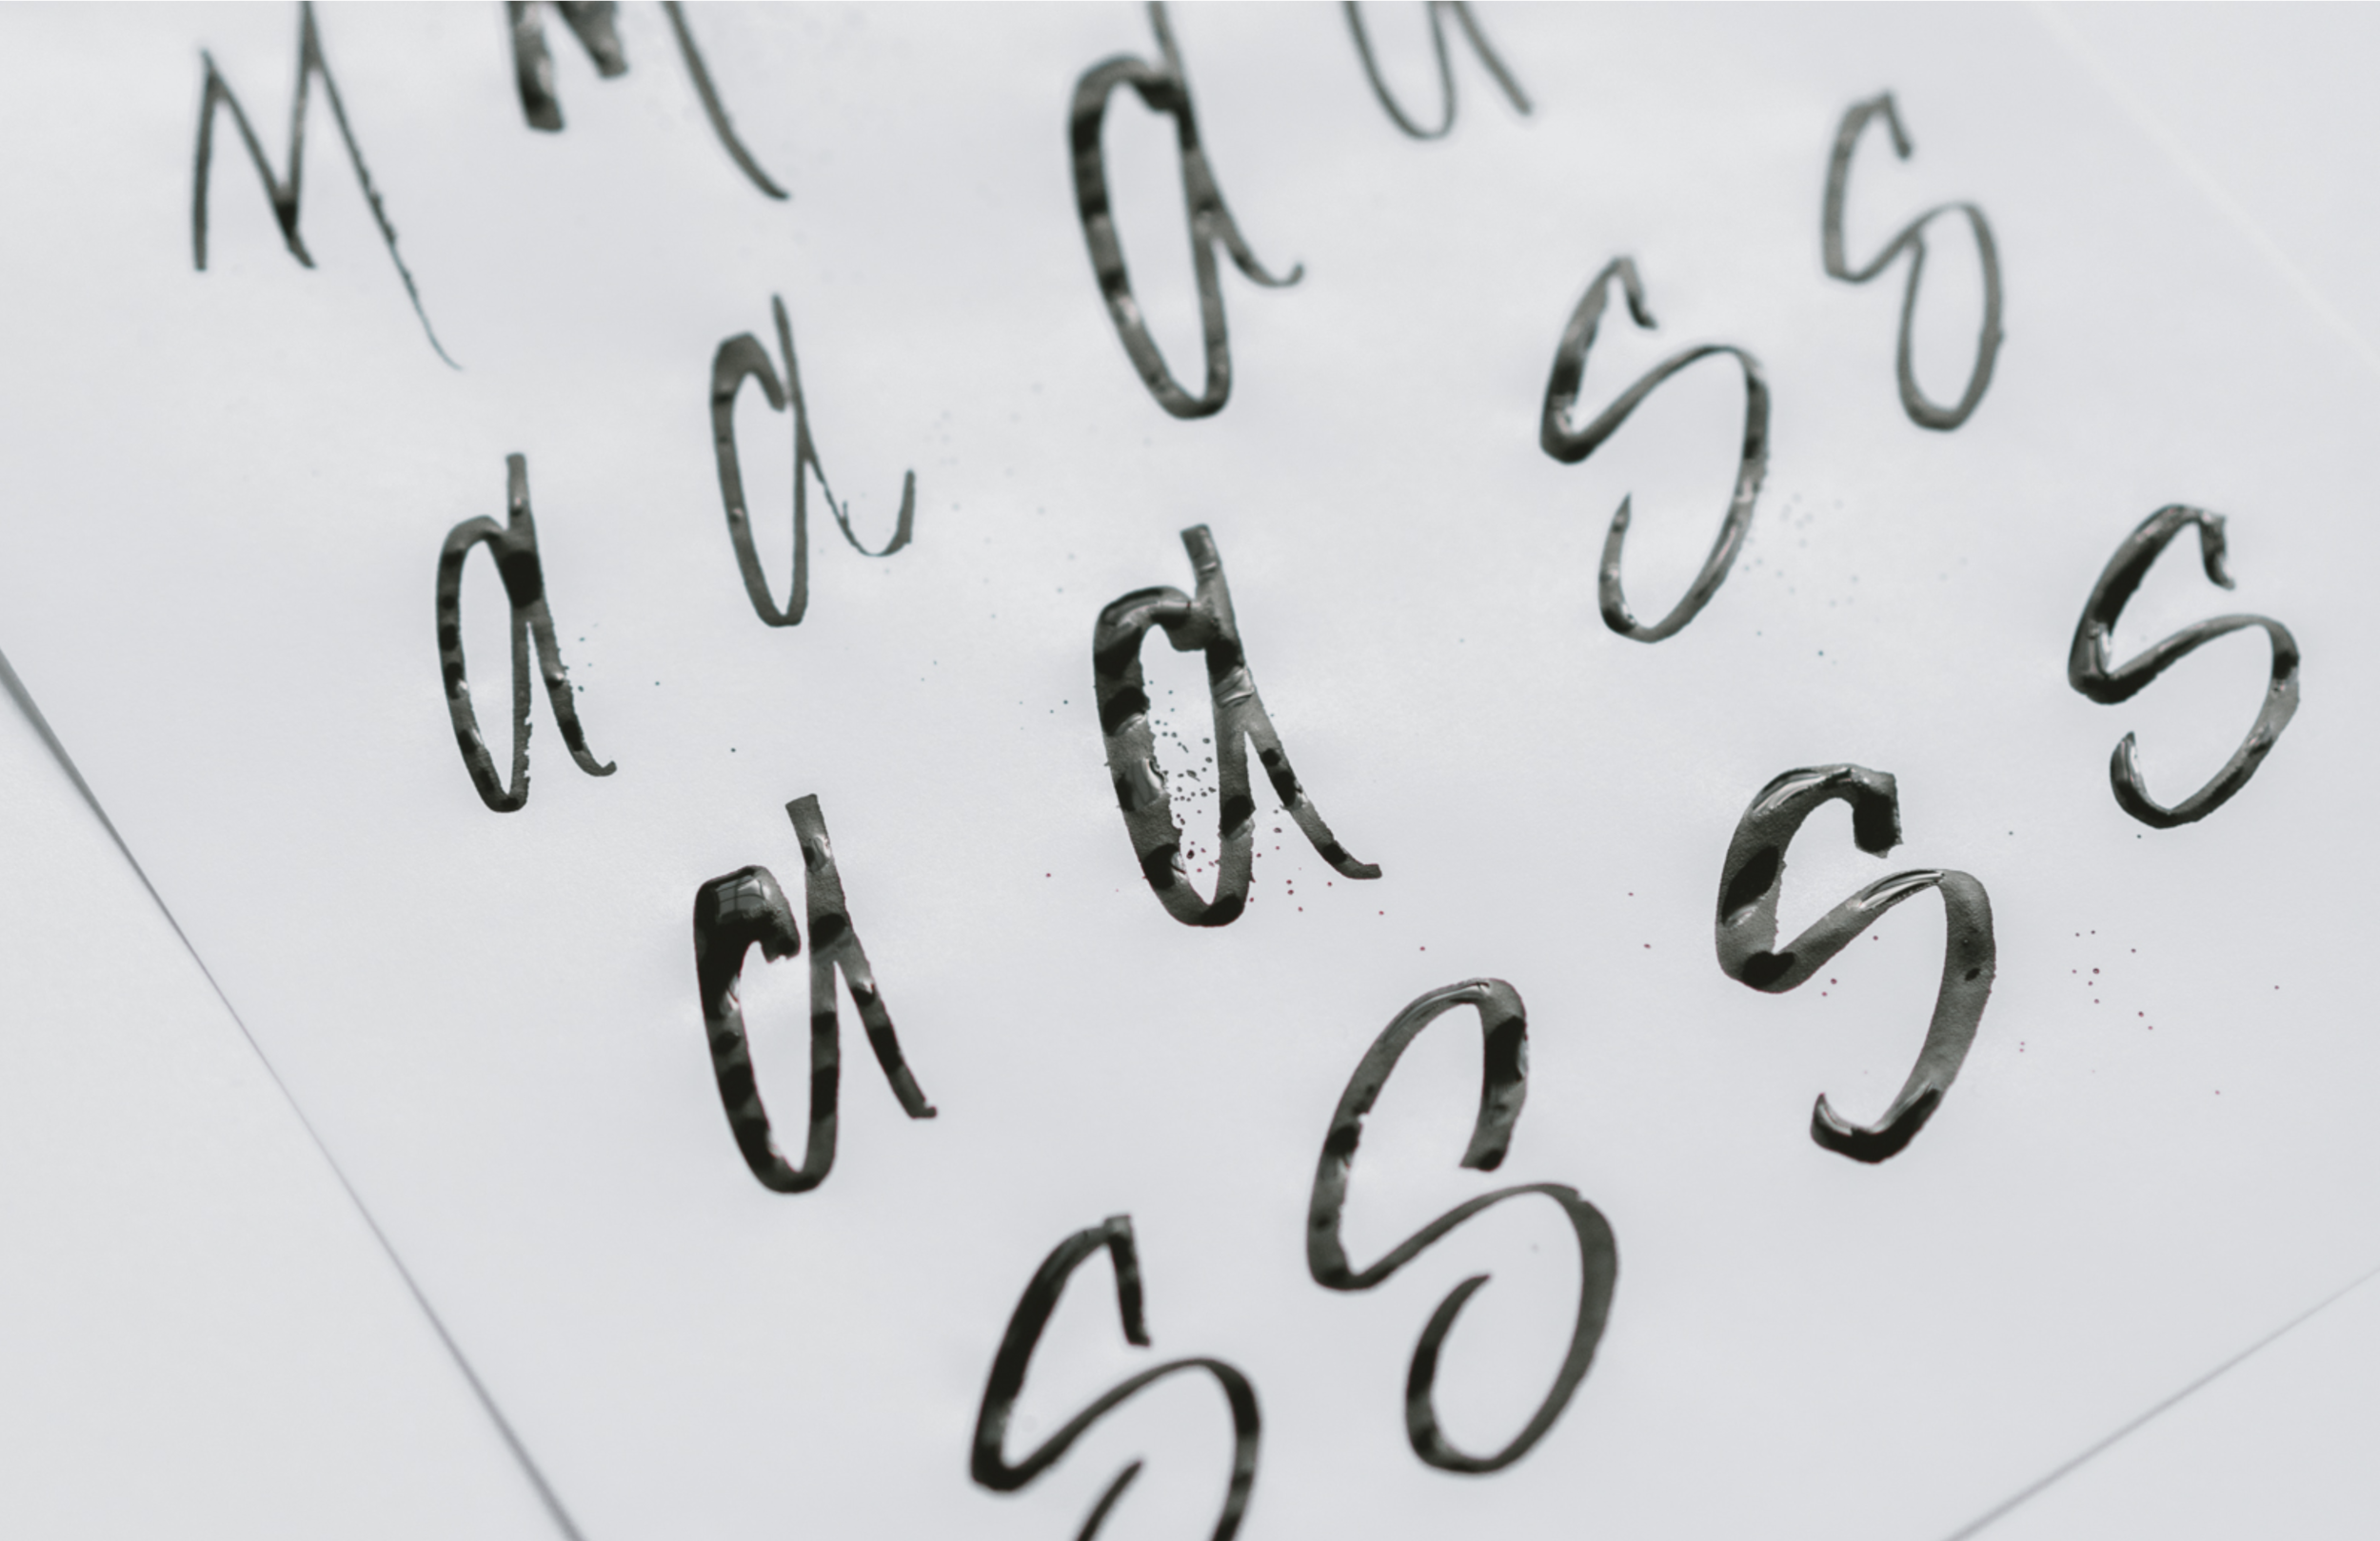 M M
a a a a
a a S S
S S S S